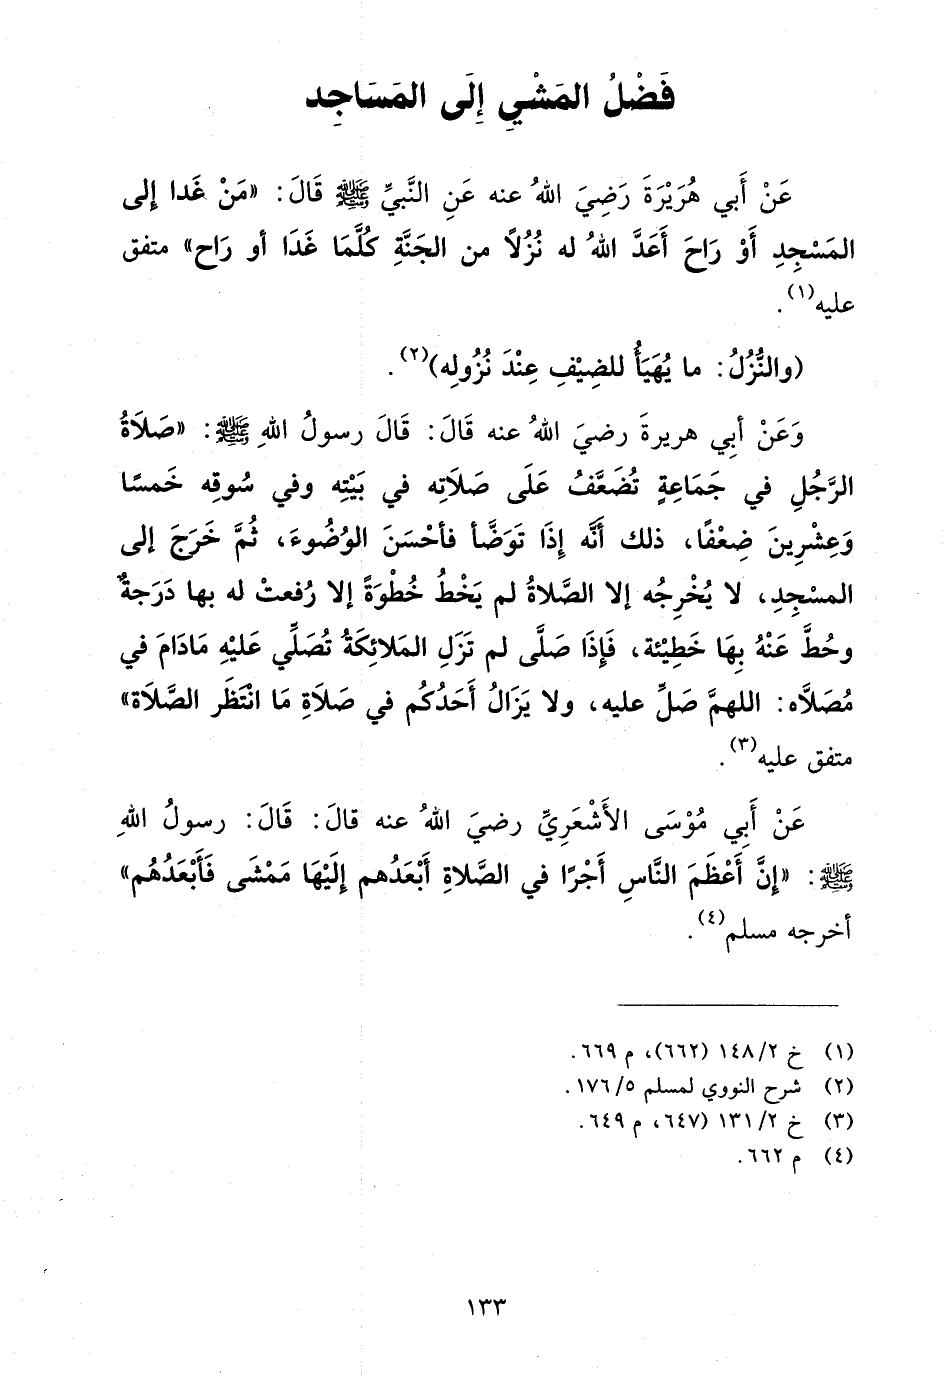 فَضْلُ المَشْيِ إِلَى المَسَاجِد
عَنْ أَبي هُرَيْرَةَ رَضِيَ اللهُ عنه عَنِ النَّبيِّ ﷺ قَالَ: «مَنْ غَدا إِلى
المَسْجِدِ أَوْ رَاحَ أَعَدَّ اللهُ له نُزُلاً من الجَنَّةِ كُلَّمَا غَدَا أو رَاح» متفق
عليه(١).
(والنُّزُلُ: ما يُهَيَأُ للضِيْفِ عِنْدَ نُزُولِه)(٢).
وَعَنْ أبِي هريرةَ رضيَ اللهُ عنه قَالَ: قَالَ رسولُ اللهِ ﷺ: «صَلَاةُ
الرَّجُلِ في جَمَاعِةٍ تُضَعَّفُ عَلَى صَلَاتِه في بَيْتِه وفي سُوقِه خَمسًا
وَعِشْرِينَ ضِعْفًا، ذلك أَنَّه إِذَا تَوَضَّأ فأحْسَنَ الوُضُوءَ، ثُمَّ خَرَجَ إلى
المسْجِدِ، لا يُخْرِجُه إلا الصَّلاةُ لم يَخْطُ خُطْوَةً إلا رُفعتْ له بها دَرَجةٌ
وحُطَّ عَنْهُ بِهَا خَطِيْئة، فَإِذَا صَلَّى لم تَزَلِ المَلائِكَةُ تُصَلِّي عَلَيْهِ مَادَامَ في
مُصَلاَّه: اللهمَّ صَلِّ عليه، ولا يَزَالُ أَحَدُكُم في صَلَاةِ مَا انْتَظَر الصَّلَاة»
متفق عليه(٣).
عَنْ أَبِي مُوْسَى الأَشْعَرِيِّ رضيَ اللهُ عنه قالَ: قَالَ: رسولُ اللهِ
ﷺ: «إِنَّ أَعْظَمَ النَّاسِ أَجْرًا في الصَّلاةِ أَبْعَدُهم إِلَيْهَا مَمْشَى فَأَبْعَدُهُم»
أخرجه مسلم(٤).
(١) خ ١٤٨/٢ (٦٦٢)، م ٦٦٩.
(٢) شرح النووي لمسلم ١٧٦/٥.
(٣) خ ١٣١/٢ (٦٤٧، م ٦٤٩.
(٤) م ٦٦٢.
١٣٣